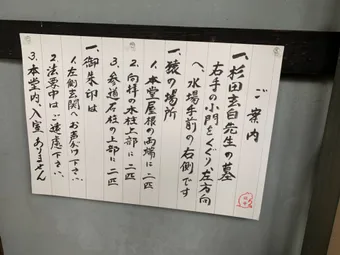 ご案内
一、杉田玄白先生の墓
右手の小門をくぐり、左方向
へ、水場手前の右側です
一、猿の場所
1.本堂屋根の両端に二匹
2.向拝の水柱上部に二匹
3.参道石柱の上部に二匹
一、御朱印は
1.左側玄関へお声がけ下さい
2.法要中はご遠慮下さい。
3.本堂内、入室ありません